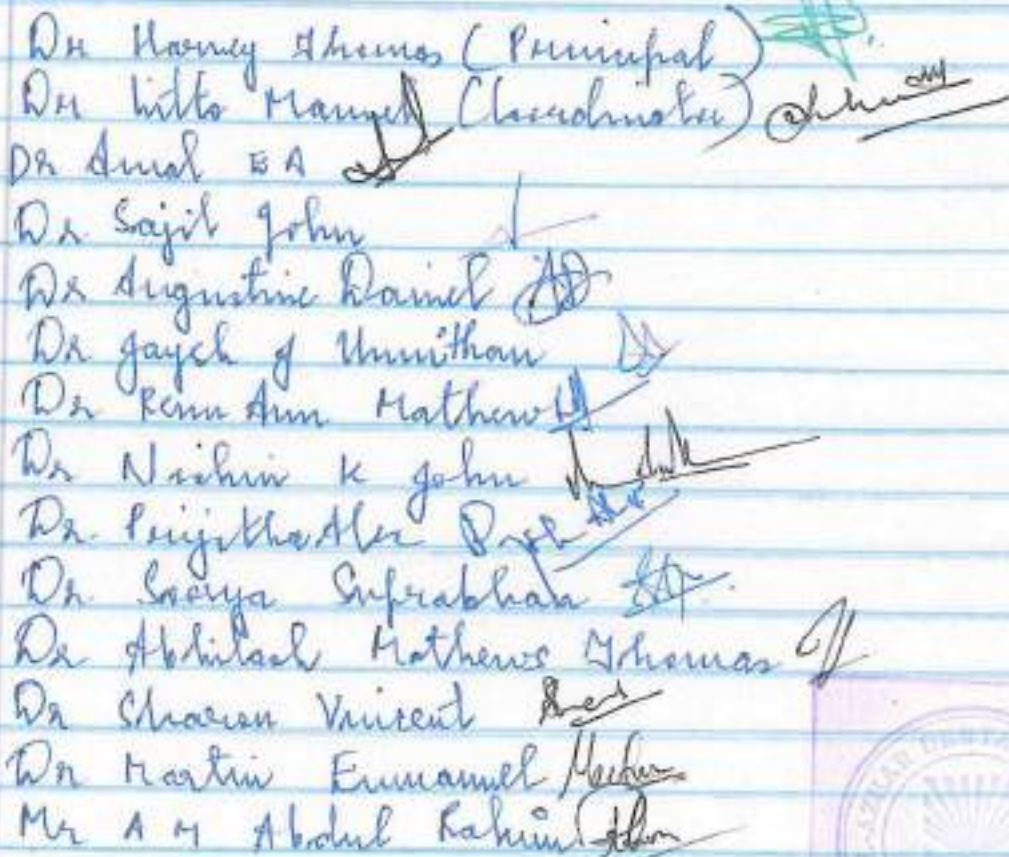 Dr Harvey Thomas (Principal)
Dr Litto Manuel (Coordinator)
Dr Amal E A
Dr Sajil John
Dr Augustine Daniel
Dr Jayesh J Unnithan
Dr Renu Ann Mathew
Dr Nishin K John
Dr. Prijitha Alex
Dr Soorya Suprabhan
Dr Abhilash Mathews Thomas
Dr Sharon Vincent
Dr Martin Emmanuel
Mr A M Abdul Rahim
AZHAR DENTA